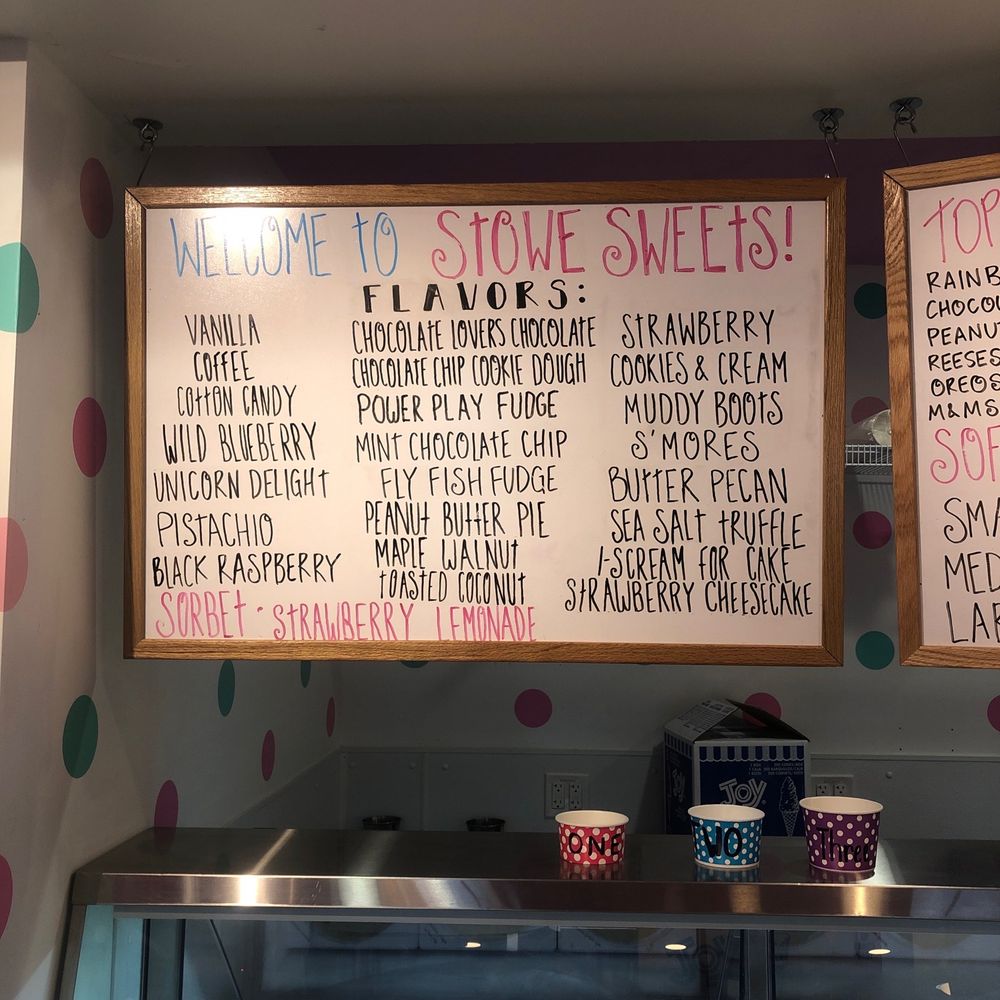 WELCOME TO STOWE SWEETS!
FLAVORS:
VANILLA
COFFEE
COTTON CANDY
WILD BLUEBERRY
UNICORN DELIGHT
PISTACHIO
BLACK RASPBERRY
CHOCOLATE LOVERS CHOCOLATE
CHOCOLATE CHIP COOKIE DOUGH
POWER PLAY FUDGE
MINT CHOCOLATE CHIP
FLY FISH FUDGE
PEANUT BUTTER PIE
MAPLE WALNUT
TOASTED COCONUT
STRAWBERRY
COOKIES & CREAM
MUDDY BOOTS
S'MORES
BUTTER PECAN
SEA SALT TRUFFLE
I-SCREAM FOR CAKE
STRAWBERRY CHEESECAKE
SORBET - STRAWBERRY LEMONADE
TOP
RAINB
CHOCOL
PEANU
REESES
OREOS
M&MS
SOF
SMA
MED
LAR
JOY
ONE
WO
Three